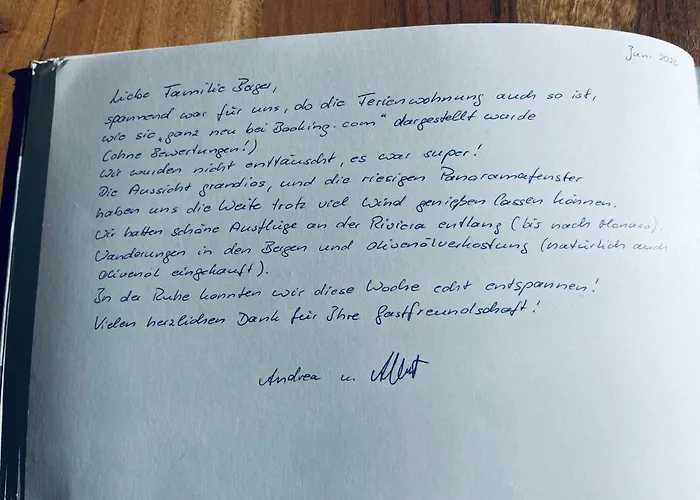 Juni
Liebe Familie Berger,
spannend war für uns, ob die Ferienwohnung auch so ist,
wie sie „ganz neu bei Booking.com" dargestellt wurde
(ohne Bewertungen!)
Wir wurden nicht enttäuscht, es war super!
Die Aussicht grandios, und die riesigen Panoramafenster
haben uns die Weite trotz viel Wind genießen lassen können.
Wir hatten schöne Ausflüge an der Riviera entlang (bis nach Monaco).
Wanderungen in den Bergen und Olivenölverkostung (natürlich auch
Olivenöl eingekauft).
In der Ruhe konnten wir diese Woche echt entspannen!
Vielen herzlichen Dank für Ihre Gastfreundschaft!
Andrea u.